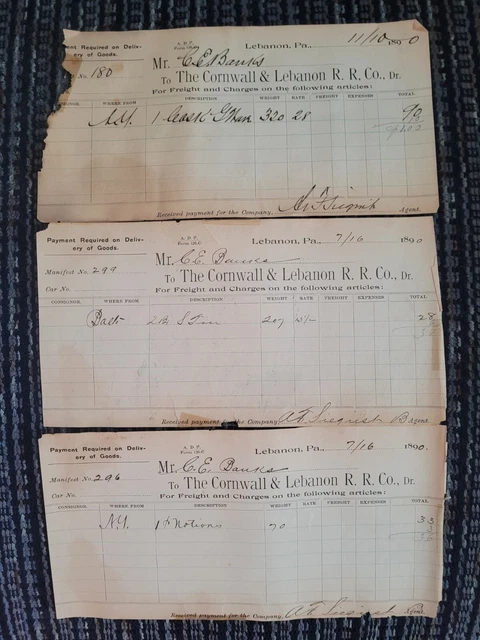 Payment Required on Delivery of Goods.
A. D. P.
Lebanon, Pa., 11/10 1890
Mr. C. E. Banks
No. 180
To The Cornwall & Lebanon R. R. Co., Dr.
For Freight and Charges on the following articles:
CONSIGNOR. WHERE FROM DESCRIPTION WEIGHT RATE FREIGHT EXPENSES TOTAL
N.Y. 1 320 28 90
Received payment for the Company, Agent.
Payment Required on Deliv-
ery of Goods.
A. D. P.
Lebanon, Pa., 7/16 1890
Mr. C. E. Banks
Manifest No. 299
To The Cornwall & Lebanon R. R. Co., Dr.
Car No.
For Freight and Charges on the following articles:
CONSIGNOR. WHERE FROM DESCRIPTION WEIGHT RATE FREIGHT EXPENSES TOTAL
Balt 207 28
Received payment for the Company, Agent.
Payment Required on Deliv-
ery of Goods.
A. D. P.
Lebanon, Pa., 7/16 1890.
Mr. C. E. Banks
Manifest No. 296
To The Cornwall & Lebanon R. R. Co., Dr.
Car No.
For Freight and Charges on the following articles:
CONSIGNOR. WHERE FROM DESCRIPTION WEIGHT RATE FREIGHT EXPENSES TOTAL
N.Y. 1 Notions 70 33
Received payment for the Company, Agent.